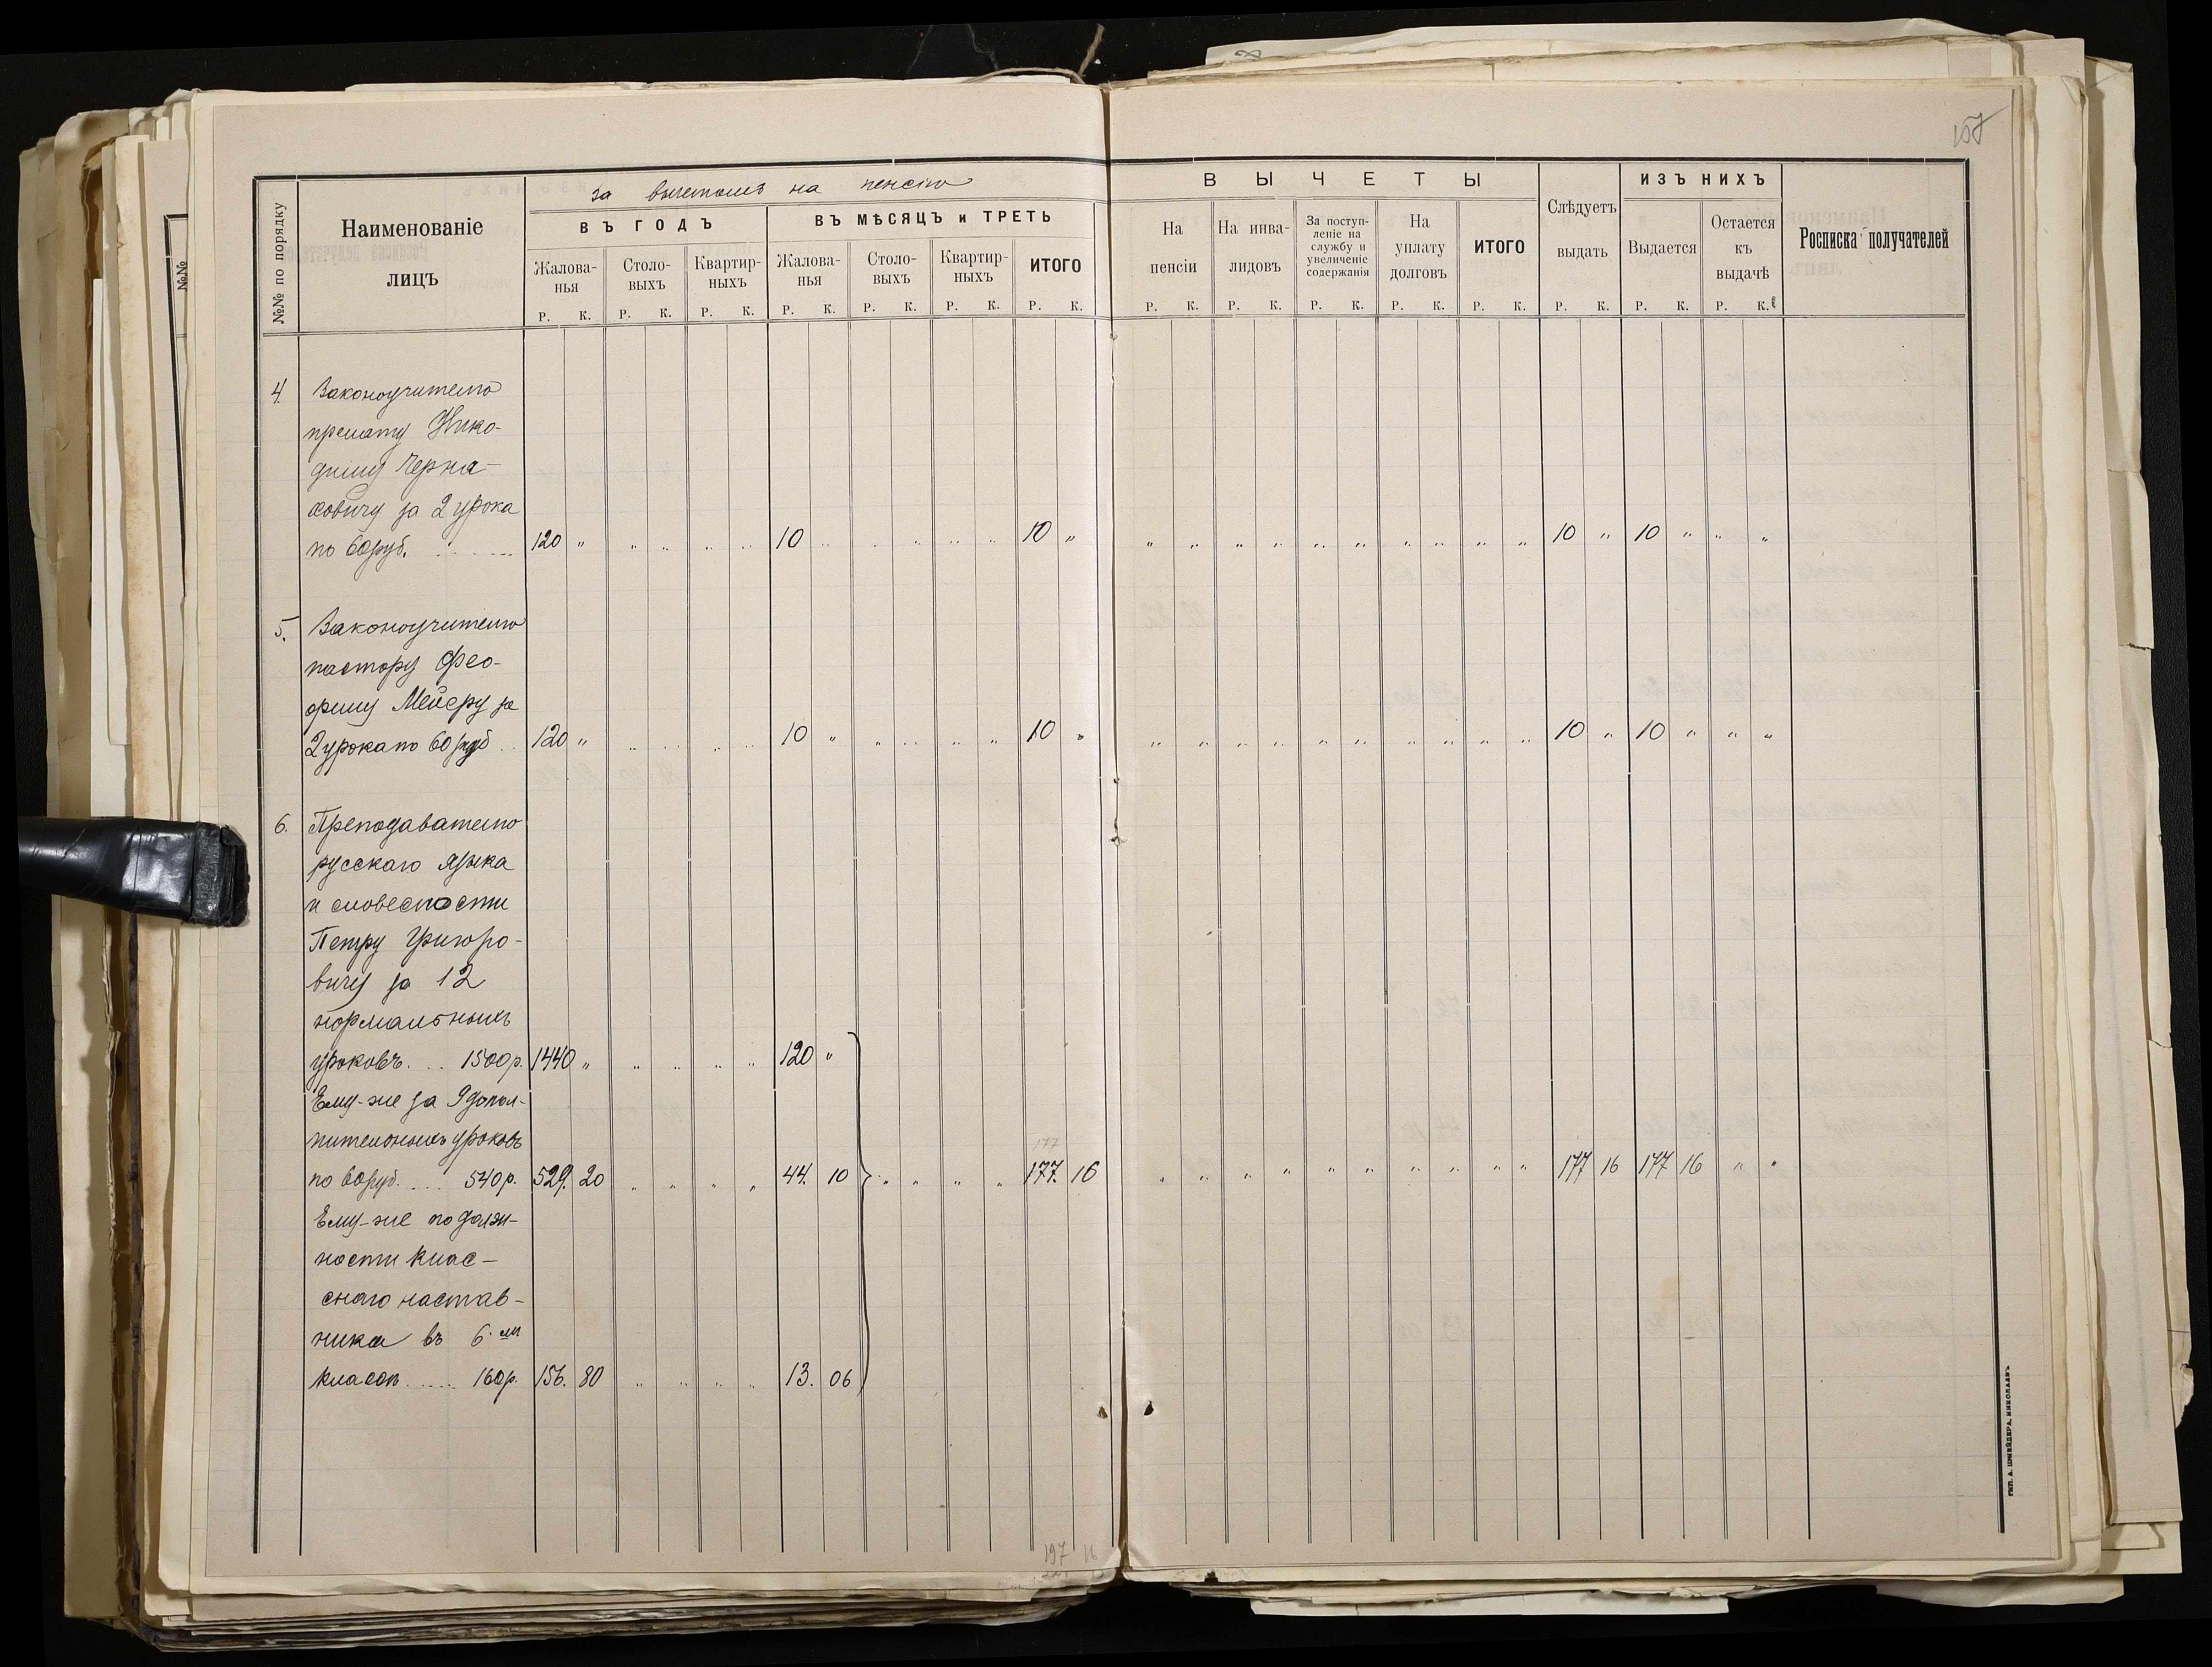 157
за вычетомъ на пенсію
№№ по порядку
Наименованіе
ЛИЦЪ
ВЪ ГОДЪ
ВЪ МѢСЯЦЪ и ТРЕТЬ
Жалова-
нья
Столо-
выхъ
Квартир-
ныхъ
Жалова-
нья
Столо-
выхъ
Квартир-
ныхъ
ИТОГО
Р. К. Р. К. Р. К. Р. К. Р. К. Р. К. Р. К.
ВЫЧЕТЫ
На
пенсіи
На инва-
лидовъ
За поступ-
леніе на
службу и
увеличеніе
содержанія
На
уплату
долговъ
ИТОГО
Слѣдуетъ
выдать
ИЗЪ НИХЪ
Выдается
Остается
къ
выдачѣ
Росписка получателей
Р. К. Р. К. Р. К. Р. К. Р. К. Р. К. Р. К. Р. К.
№№
4. Законоучителю
прелату Нико-
диму Черна-
ховичу за 2 урока
по 60 руб. 120 " " " " " 10 " " " " " 10 " " " " " " " " " " " 10 " 10 " " "
5. Законоучителю
пастору Фео-
филу Мейеру за
2 урока по 60 руб 120 " " " " " 10 " " " " " 10 " " " " " " " " " " " 10 " 10 " " "
6. Преподавателю
русскаго языка
и словесности
Петру Григоро-
вичу за 12
нормальныхъ
уроковъ... 1500р. 1440 " " " " " 120 "
Ему-же за 9 допол-
нительныхъ уроковъ
177
по 60 руб.... 540р. 529. 20 " " " " 44. 10 " " " " 177. 16 " " " " " " " " " " 177 16 177 16 " "
Ему-же по долж-
ности клас-
снаго настав-
ника въ 6-мъ
классѣ..... 160р. 156. 80 " " " " 13. 06
197 16
ТИП. А. ШНЕЙДЕРА, НИКОЛАЕВЪ